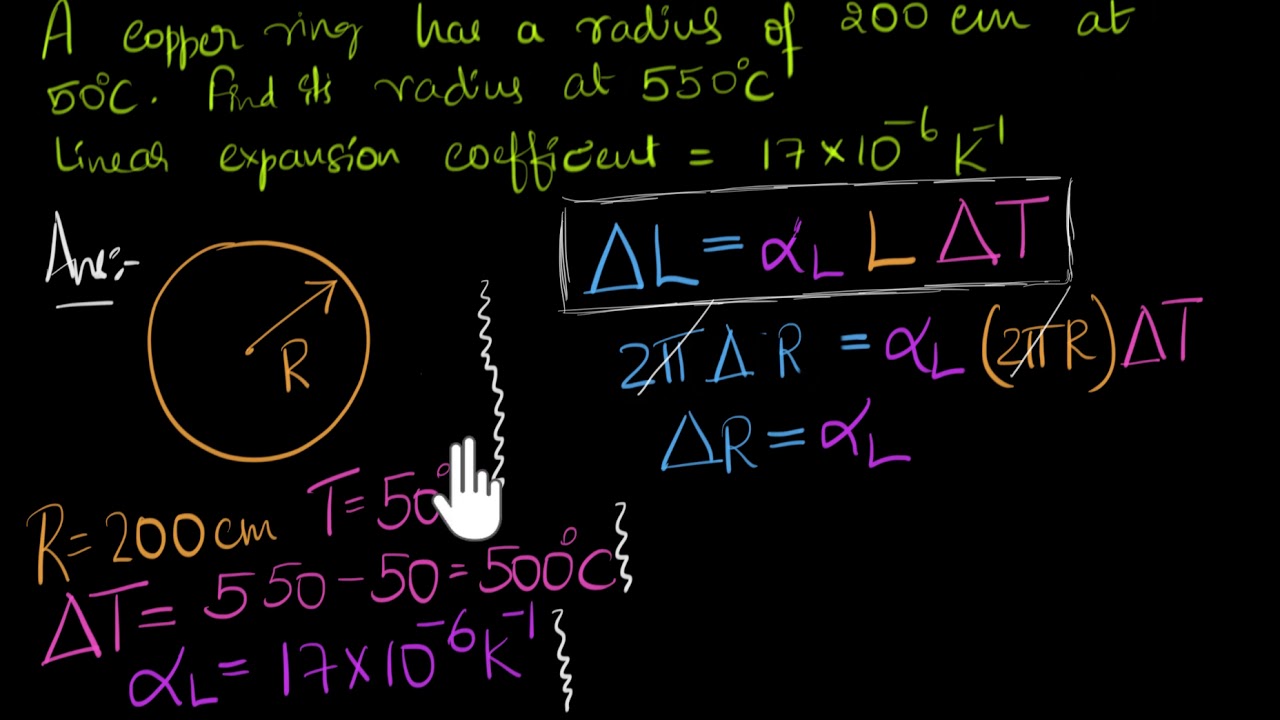 A copper ring has a radius of 200 cm at
50°C. Find its radius at 550°C
Linear expansion coefficient = 17×10⁻⁶ K⁻¹
Ans:-
ΔL = α_L L ΔT
R
2π Δ R = α_L (2πR) ΔT
ΔR = α_L
R = 200 cm T = 50°
ΔT = 550 - 50 = 500°C
α_L = 17×10⁻⁶ K⁻¹